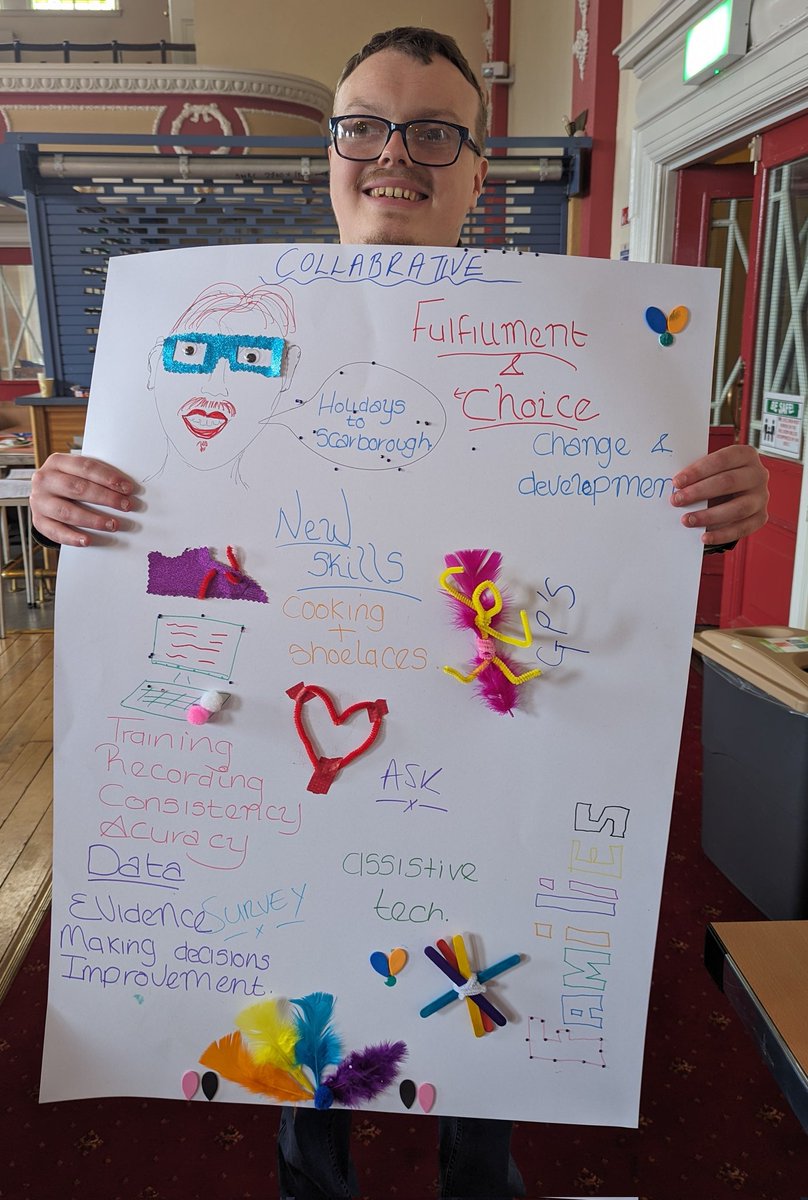 COLLABRATIVE
Fulfilment
&
Choice
Change &
development
Holidays
to
Scarborough
New
Skills
Cooking
+
Shoelaces
GP's
Training
Recording
Consistency
Acuracy
ASK
Data
Evidence
SURVEY
Making decisions
Improvement.
assistive
tech.
FAMiliES
BE SAFE!